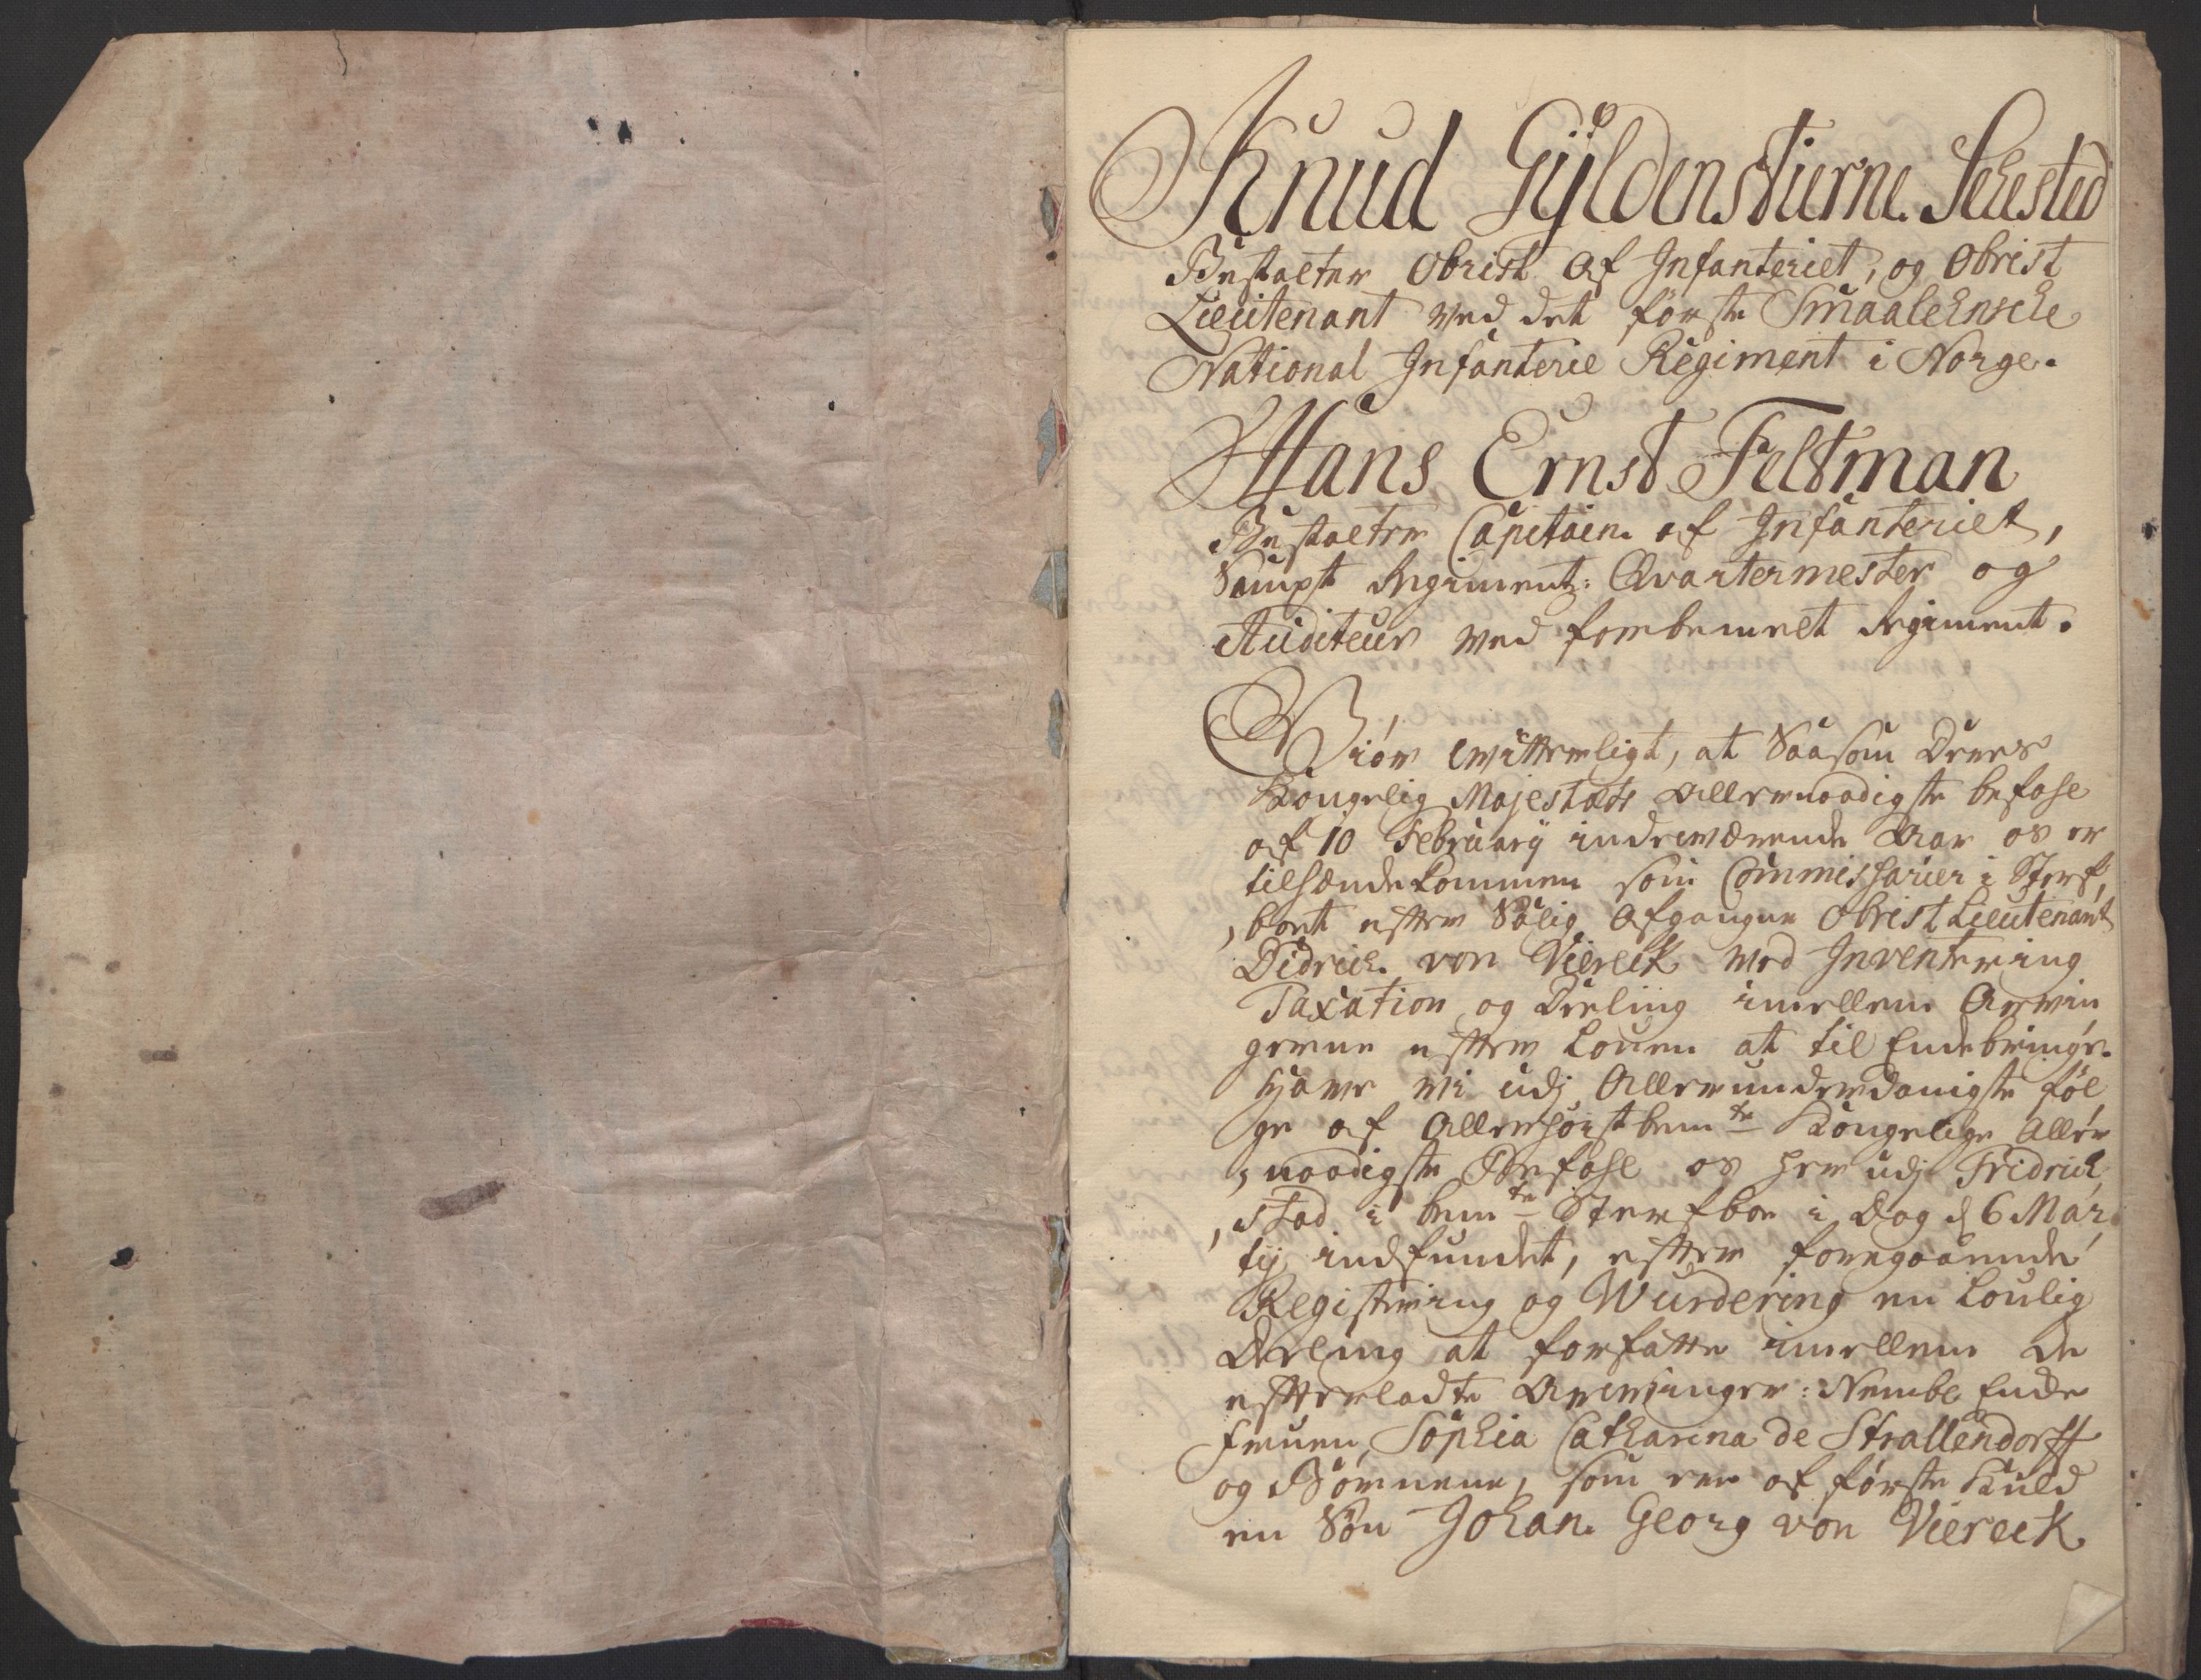 Knud Gÿldenstierne Sehested
Bestalter Obrist af Infanteriet, og Obrist
Lieutenant ved det første Smaalehnsche
National Infanterie Regiment i Norge.
Hans Ernst Feltman
Bestalter Capitain af Infanteriet,
Sampt Regiments Qvartermester og
Auditeur ved forbemelt Regiment.
Giør witterligt, at Saasom Deres
Kongelig Majestæts Allernaadigste befahl
af 10 Februarij indeværende Aar os er
tilhændekommen som Commissarier i Sterf,
,boet efter Salig Afgangne Obrist Lieutenant
Didrich von Viereck med Inventering
Taxation og Deeling imellem Arvin
gerne efter Loven at til Endebringe.
Hafve vi udj Allerunderdanigste føl
ge af Allerhøistbemte Kongelige Aller
,naadigste Befahl os her udj Fridrich,
,stad i bemte Sterfboe i Dag d 6 Mar,
tij indfundet, efter foregaaende
Registering og Wurdering en Lovlig
Deeling at forfatte imellem de
efterladte Arvinger: Nembl. Encke
Fruen Sophia Catharina de Strallendorff
og Børnene, som ere af første Kuld
en Søn Johan Georg von Viereck